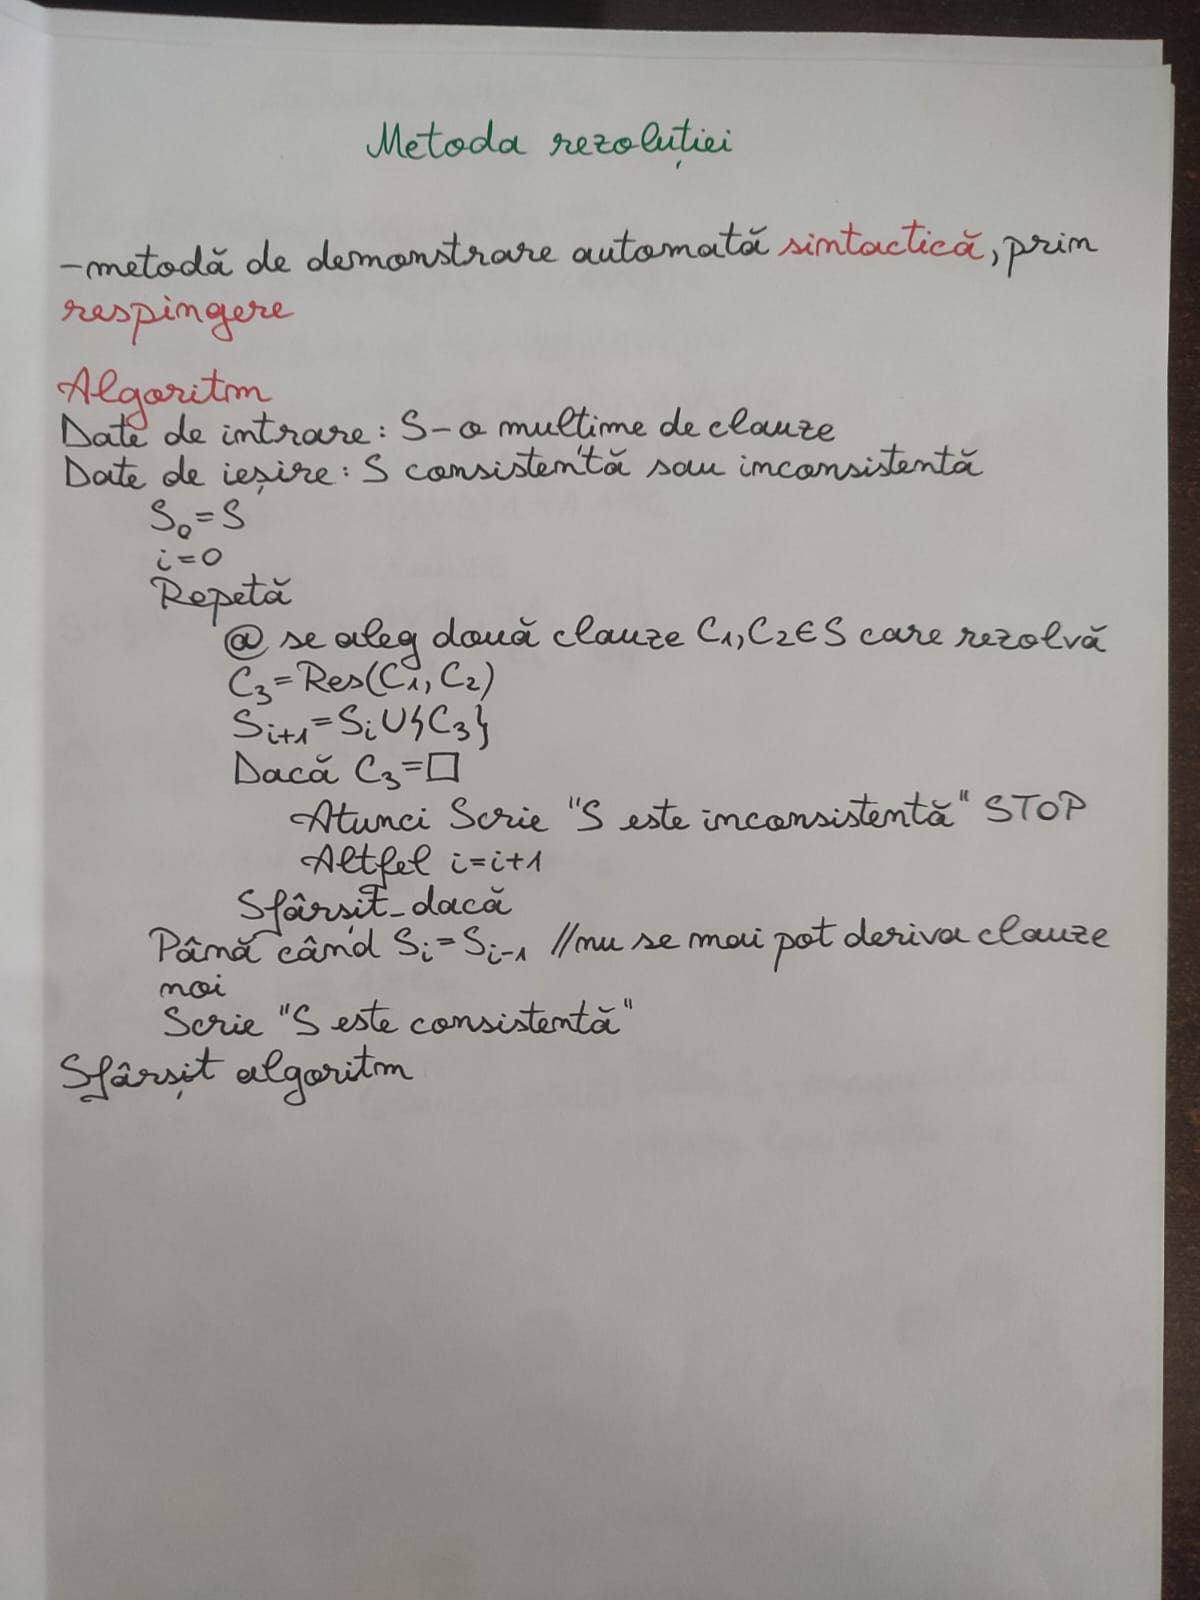 Metoda rezoluției
-metodă de demonstrare automată sintactică, prin
respingere
Algoritm
Date de intrare: S-o mulțime de clauze
Date de ieșire: S consistentă sau inconsistentă
S₀=S
i=0
Repetă
@ se aleg două clauze C₁, C₂∈S care rezolvă
C₃=Res(C₁, C₂)
Sᵢ₊₁=Sᵢ∪{C₃}
Dacă C₃=□
Atunci Scrie "S este inconsistentă" STOP
Altfel i=i+1
Sfârșit_dacă
Până când Sᵢ=Sᵢ₋₁ //nu se mai pot deriva clauze
noi
Scrie "S este consistentă"
Sfârșit algoritm